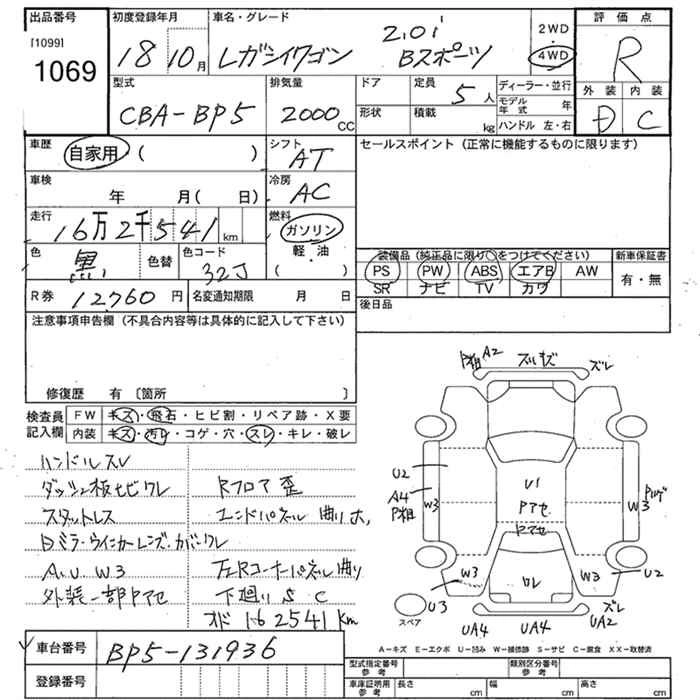 出品番号
[1099]
1069
初度登録年月
18 10月
車名・グレード
レガシイワゴン 2.0i
Bスポーツ
2WD
4WD
評価点
R
外装 内装
D C
型式
CBA-BP5
排気量
2000 CC
ドア
形状
定員
5人
積載
kg
ディーラー・並行
モデル年式 年
ハンドル 左・右
車歴
自家用 ( )
シフト
AT
車検
年 月( 日)
冷房
AC
走行
16万2千541 km
燃料
ガソリン
軽・油
( )
色
黒
色替
色コード
32J
R券 12760円
名変通知期限 月 日
セールスポイント (正常に機能するものに限ります)
装備品(純正品に限り○をつけてください)
新車保証書
PS PW ABS エアB AW
SR ナビ TV カワ
有・無
後日品
注意事項申告欄(不具合内容等は具体的に記入して下さい)
修復歴 有 〔箇所 〕
検査員記入欄
FW キズ・飛石・ヒビ割・リペア跡・X要
内装 キズ・汚レ・コゲ・穴・スレ・キレ・破レ
ハンドルスレ
ダッシュ板セビワレ
スタットレス
Dミラーウインカーレンズ・カバーワレ
A.U.W3
外装一部Pアセ
Rフロア歪
エンドパネル曲りホ,
左Rコーナーパネル曲り
下廻りS C
オド162541km
P粗 A2
ズレキズ
ズレ
U2
A4
P粗
W3
U1
Pアセ
Pアセ
W3
W3
ワレ
W3
U2
U3
スペア
UA4
UA4
ズレ
UA2
A-キズ E-エクボ U-凹み W-補修跡 S-サビ C-腐食 XX-取替済
車台番号 BP5-131936
登録番号
型式指定番号
参考
類別区分番号
参考
車庫証明用
参考
長さ cm
幅 cm
高さ cm